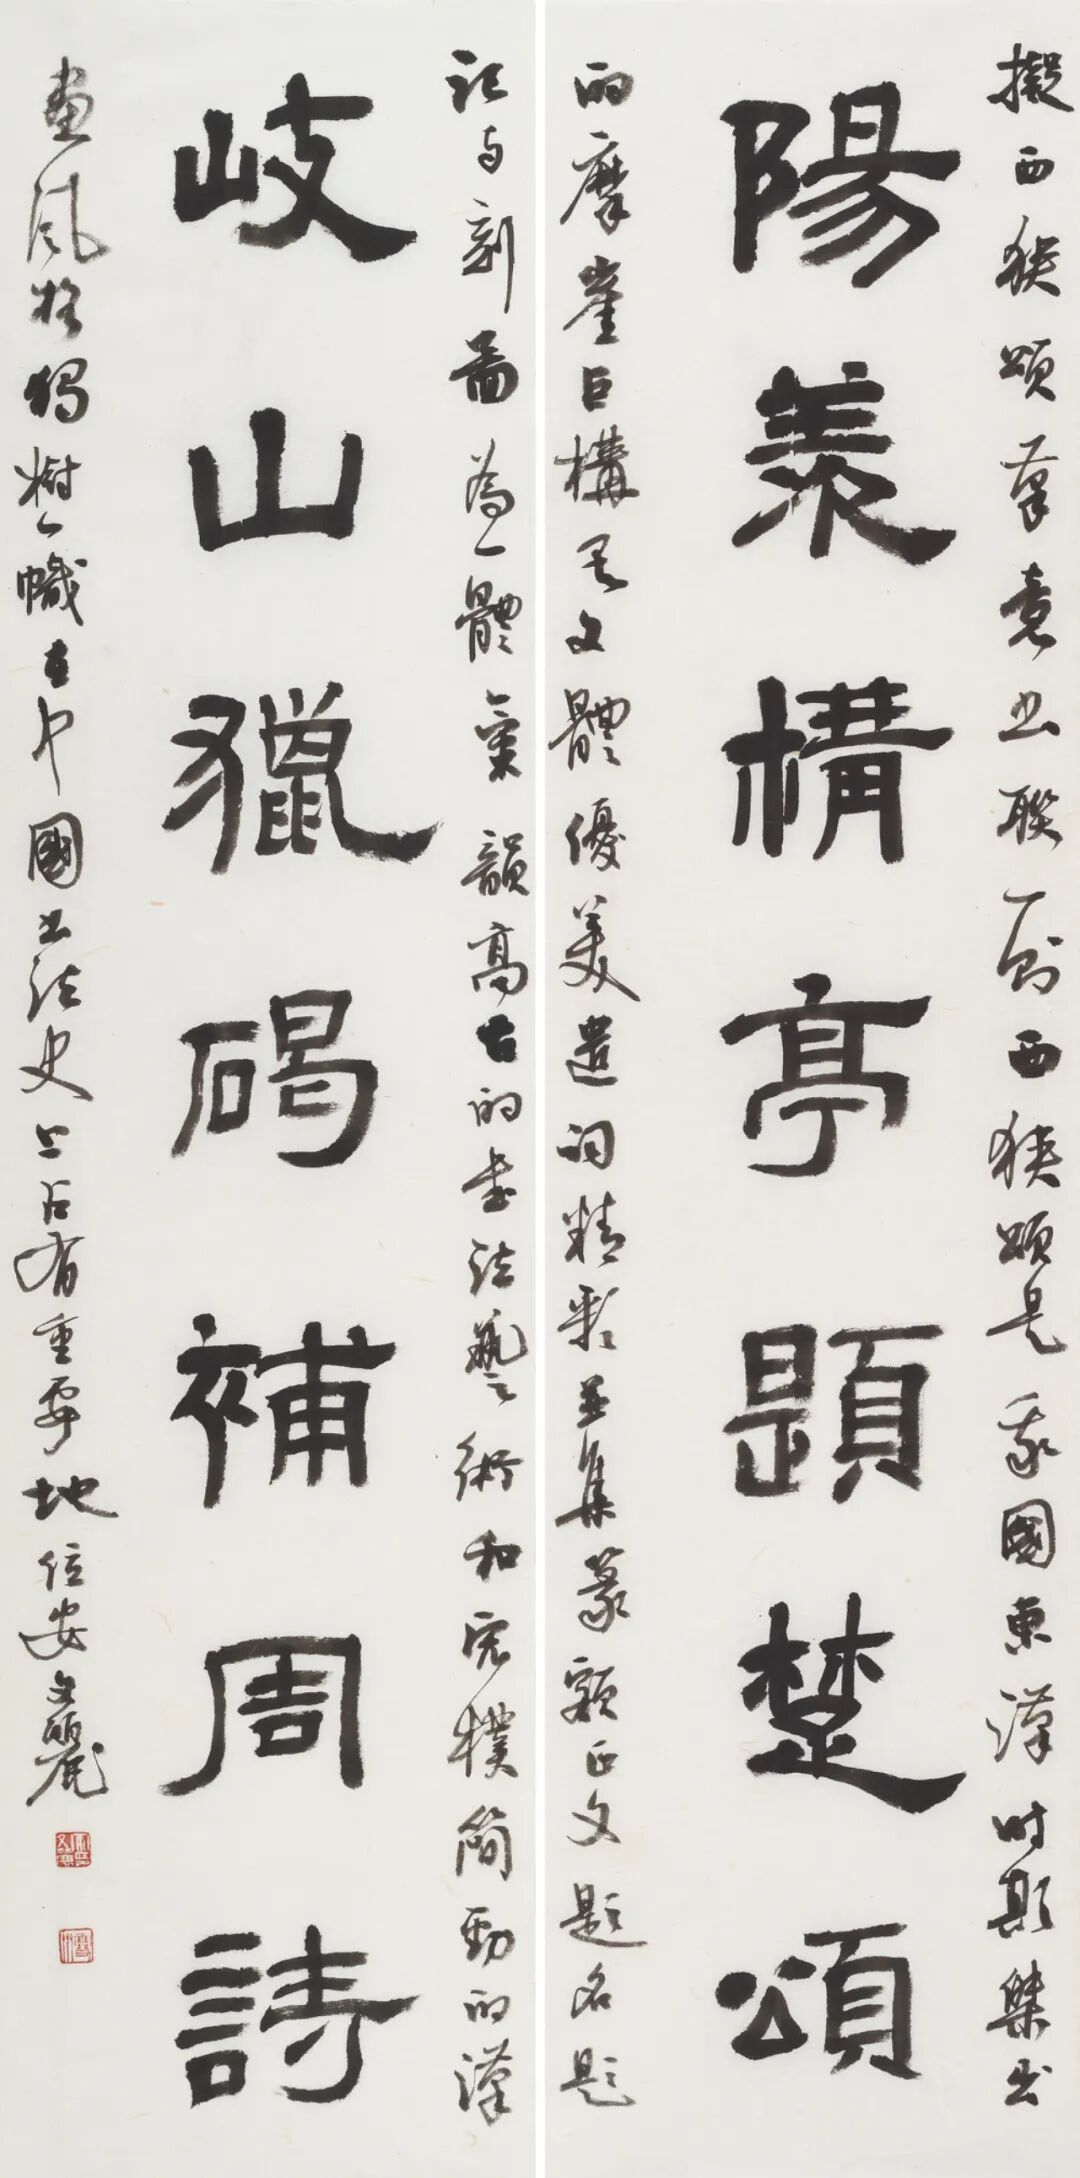 擬西狹頌筆意書聯一則西狹頌是我國東漢時期傑出
陽羨構亭題楚頌
的摩崖巨構其文體優美遣詞精彩並集篆額正文題名題
記与刻圖為一體氣韻高古的書法藝術和樸簡勁的漢
岐山獵碣補周詩
畫風格獨樹一幟在中國書法史上占有重要地位安文麗